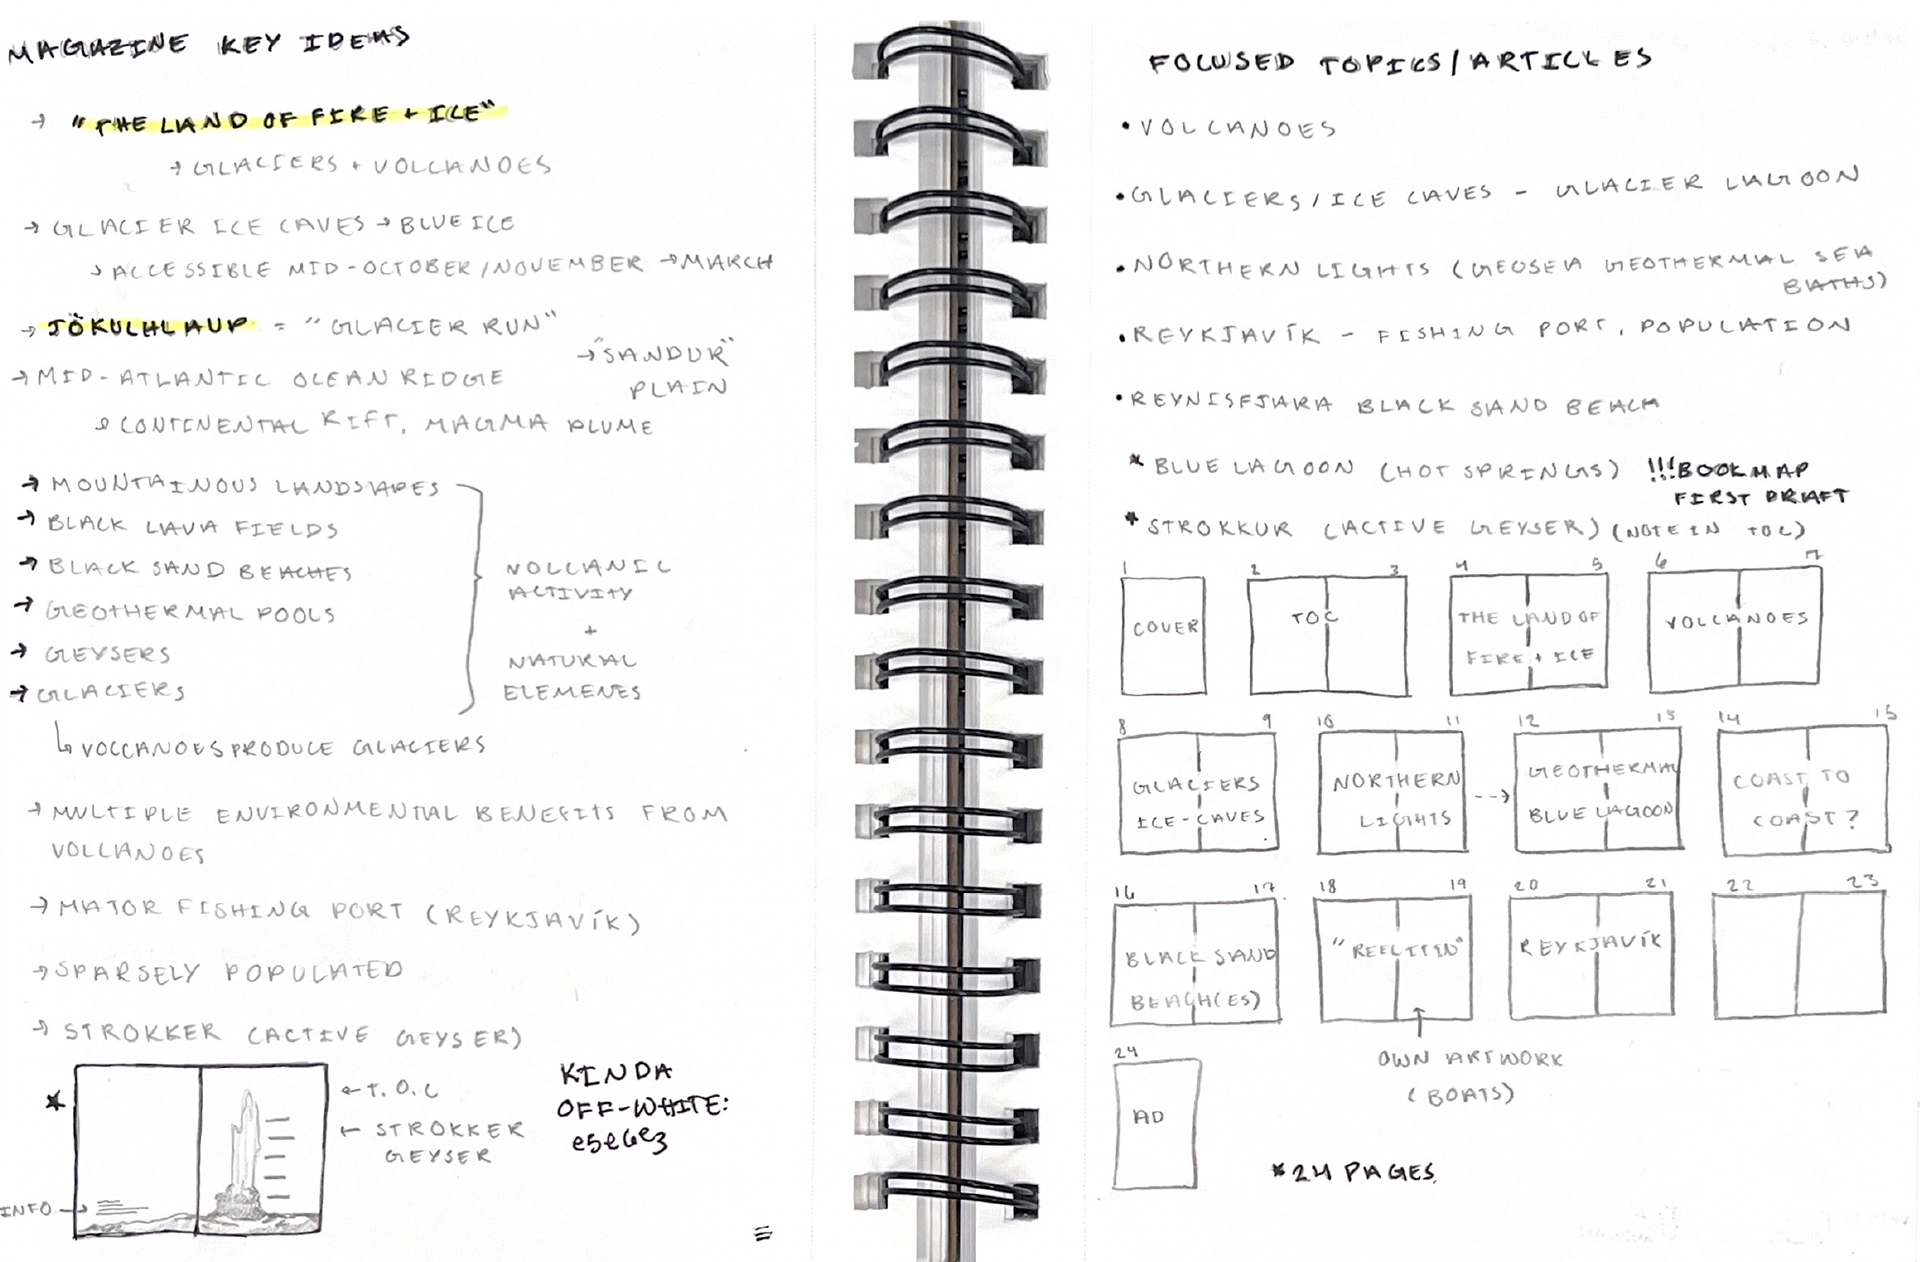 MAGAZINE KEY IDEAS
→ "THE LAND OF FIRE + ICE"
→ GLACIERS + VOLCANOES
→ GLACIER ICE CAVES → BLUE ICE
→ ACCESSIBLE MID-OCTOBER/NOVEMBER → MARCH
→ JÖKULHLAUP = "GLACIER RUN"
→ "SANDUR"
PLAIN
→ MID-ATLANTIC OCEAN RIDGE
CONTINENTAL RIFT, MAGMA PLUME
→ MOUNTAINOUS LANDSCAPES
→ BLACK LAVA FIELDS
→ BLACK SAND BEACHES
→ GEOTHERMAL POOLS
→ GEYSERS
→ GLACIERS
VOLCANIC
ACTIVITY
+
NATURAL
ELEMENTS
↳ VOLCANOES PRODUCE GLACIERS
→ MULTIPLE ENVIRONMENTAL BENEFITS FROM
VOLCANOES
→ MAJOR FISHING PORT (REYKJAVÍK)
→ SPARSELY POPULATED
→ STROKKER (ACTIVE GEYSER)
★
← T.O.C
← STROKKER
GEYSER
INFO →
KINDA
OFF-WHITE:
e5e6e3
FOCUSED TOPICS/ARTICLES
• VOLCANOES
• GLACIERS/ICE CAVES - GLACIER LAGOON
• NORTHERN LIGHTS (GEOSEA GEOTHERMAL SEA
BATHS)
• REYKJAVÍK - FISHING PORT, POPULATION
• REYNISFJARA BLACK SAND BEACH
★ BLUE LAGOON (HOT SPRINGS)
!!!BOOKMAP
FIRST DRAFT
★ STROKKUR (ACTIVE GEYSER) (NOTE IN TOC)
1
COVER
2 3
TOC
4 5
THE LAND OF
FIRE + ICE
6 7
VOLCANOES
8 9
GLACIERS
ICE-CAVES
10 11
NORTHERN
LIGHTS
-->
12 13
GEOTHERMAL
BLUE LAGOON
14 15
COAST TO
COAST?
16 17
BLACK SAND
BEACH(ES)
18 19
"REEL IT IN"
20 21
REYKJAVÍK
22 23
OWN ARTWORK
(BOATS)
24
AD
*24 PAGES.